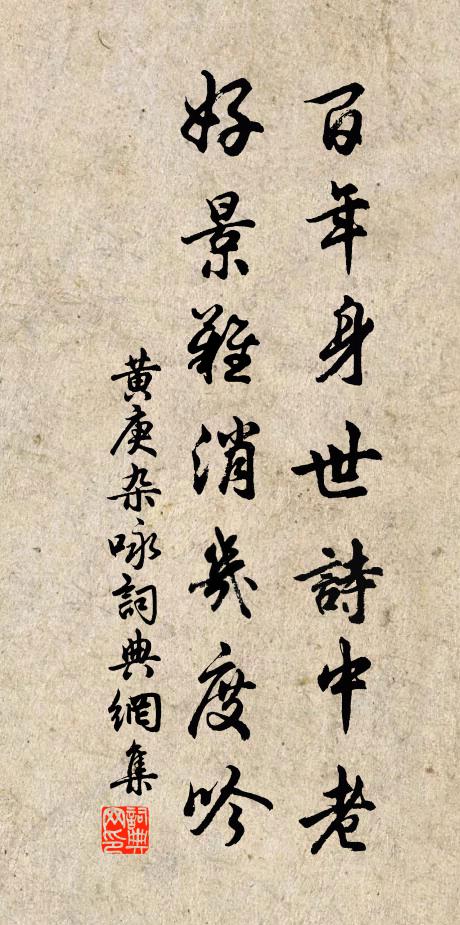 百年身世詩中老
好景難消幾度吟
黃庚杂咏詞典網集
詞典网印